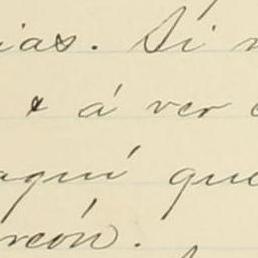 ias. Si
& á ver
aquí que
rcón.